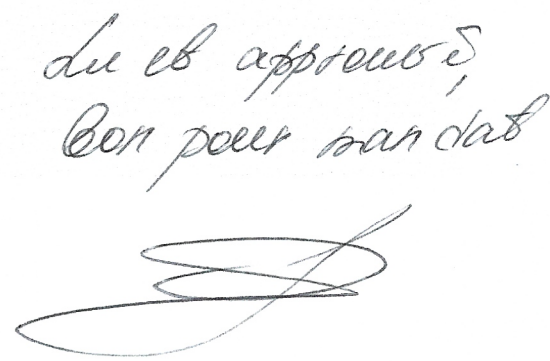 Lu et approuvé,
Bon pour mandat